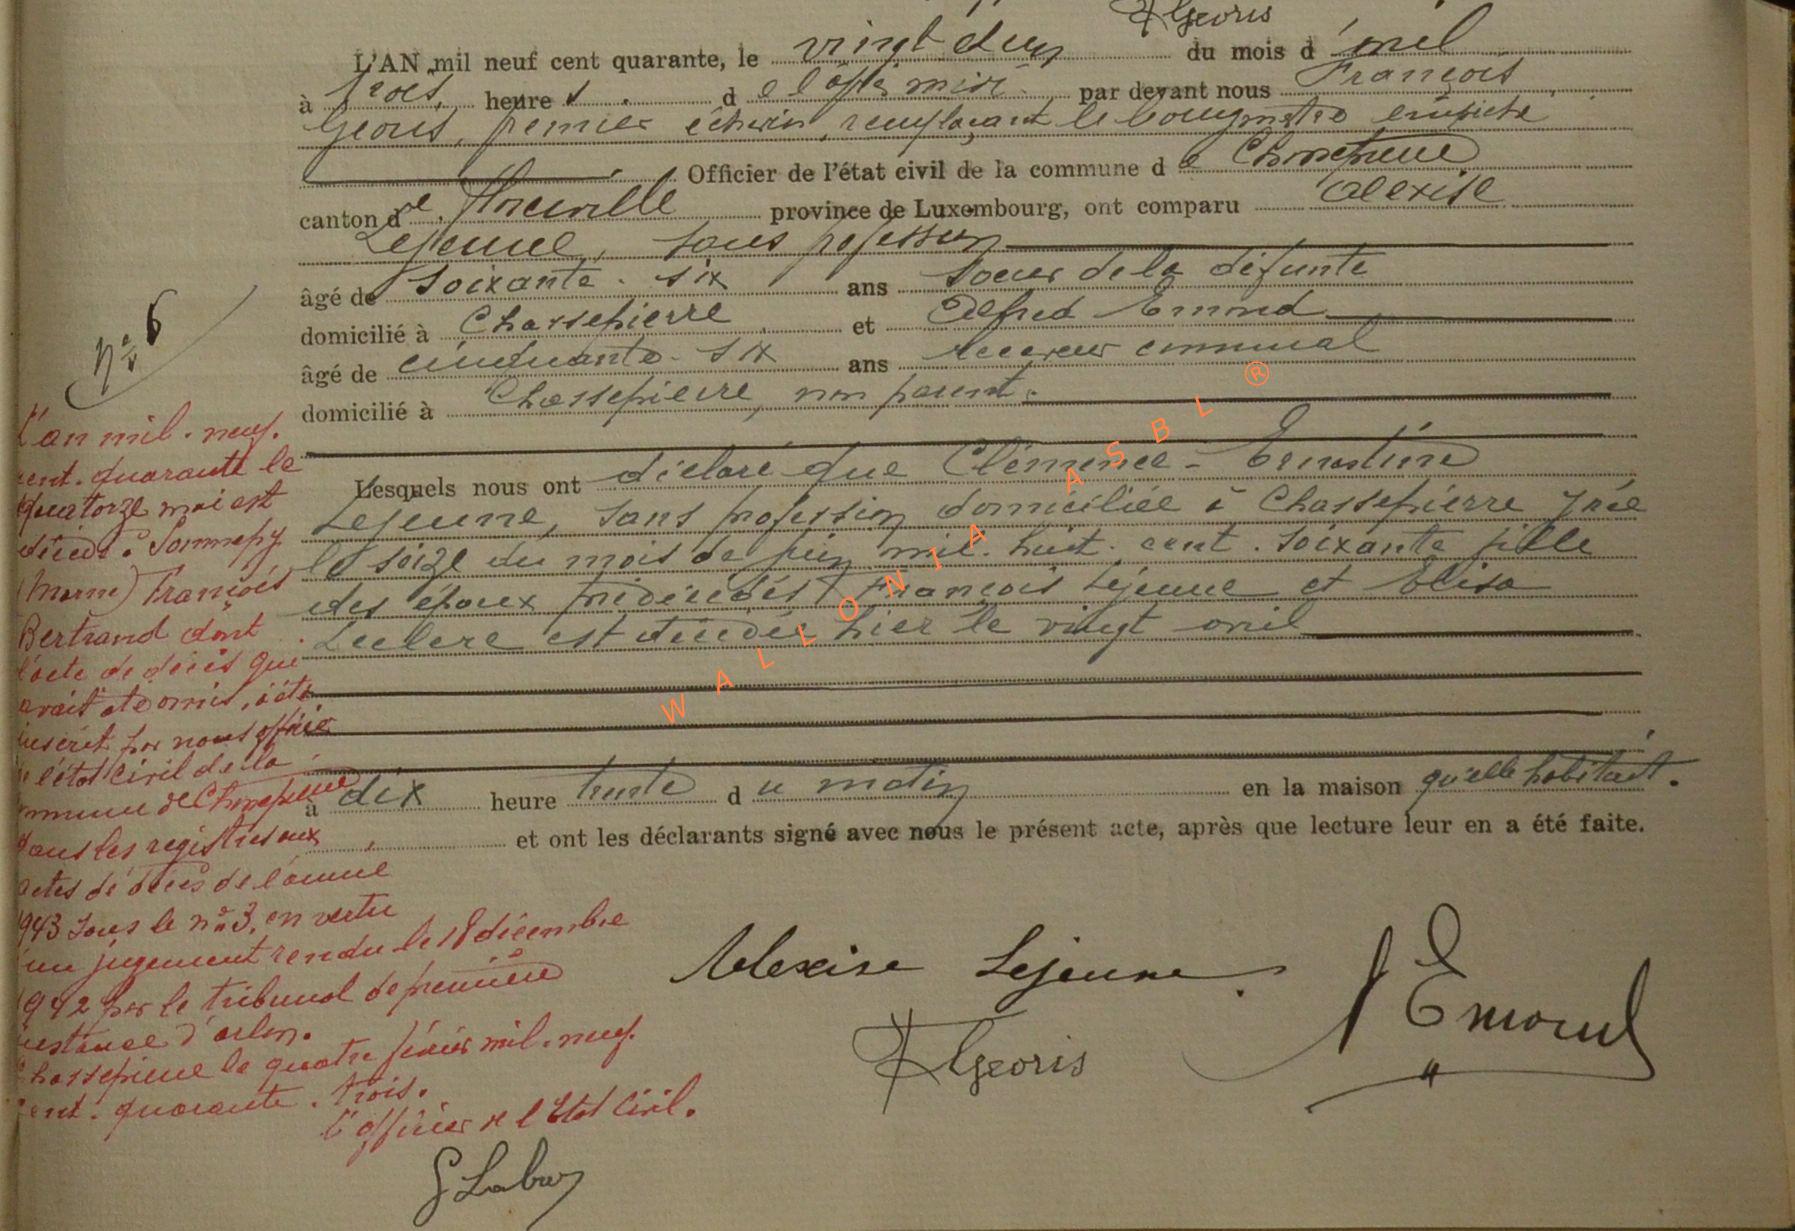 F Georis
L'AN mil neuf cent quarante, le vingt et un du mois d'avril
à trois heures de l'après midi par devant nous François
Georis, premier échevin, remplaçant le bourgmestre empêché
Officier de l'état civil de la commune de Chassepierre
canton de Florenville province de Luxembourg, ont comparu Alexise
Lejeune, sans profession
âgé de soixante-six ans soeur de la défunte
domicilié à Chassepierre et Alfred Emond
âgé de cinquante-six ans receveur communal
domicilié à Chassepierre, non parent.
Lesquels nous ont déclaré que Clémence-Ernestine
Lejeune, sans profession domiciliée à Chassepierre y née
le seize du mois de juin mil-huit-cent-soixante fille
des époux prédécédés François Lejeune et Elisa
Leclere est décédée hier le vingt avril
à dix heure trente du matin en la maison qu'elle habitait.
et ont les déclarants signé avec nous le présent acte, après que lecture leur en a été faite.
Alexise Lejeune
F Georis
A Emond
N° 6
L'an mil-neuf-
cent-quarante le
quatorze mai est
décédé à Sommepy
(Marne) François
Bertrand dont
l'acte de décès qui
avait été omis, a été
inscrit par nous officier
de l'état civil de la
commune de Chassepierre
dans les registres aux
actes de décès de l'année
1943 sous le n° 3, en vertu
d'un jugement rendu le 18 décembre
1942 par le tribunal de première
instance d'Arlon.
Chassepierre le quatre février mil-neuf-
cent-quarante-trois.
L'officier de l'Etat Civil.
WALLONIA ASBL ®